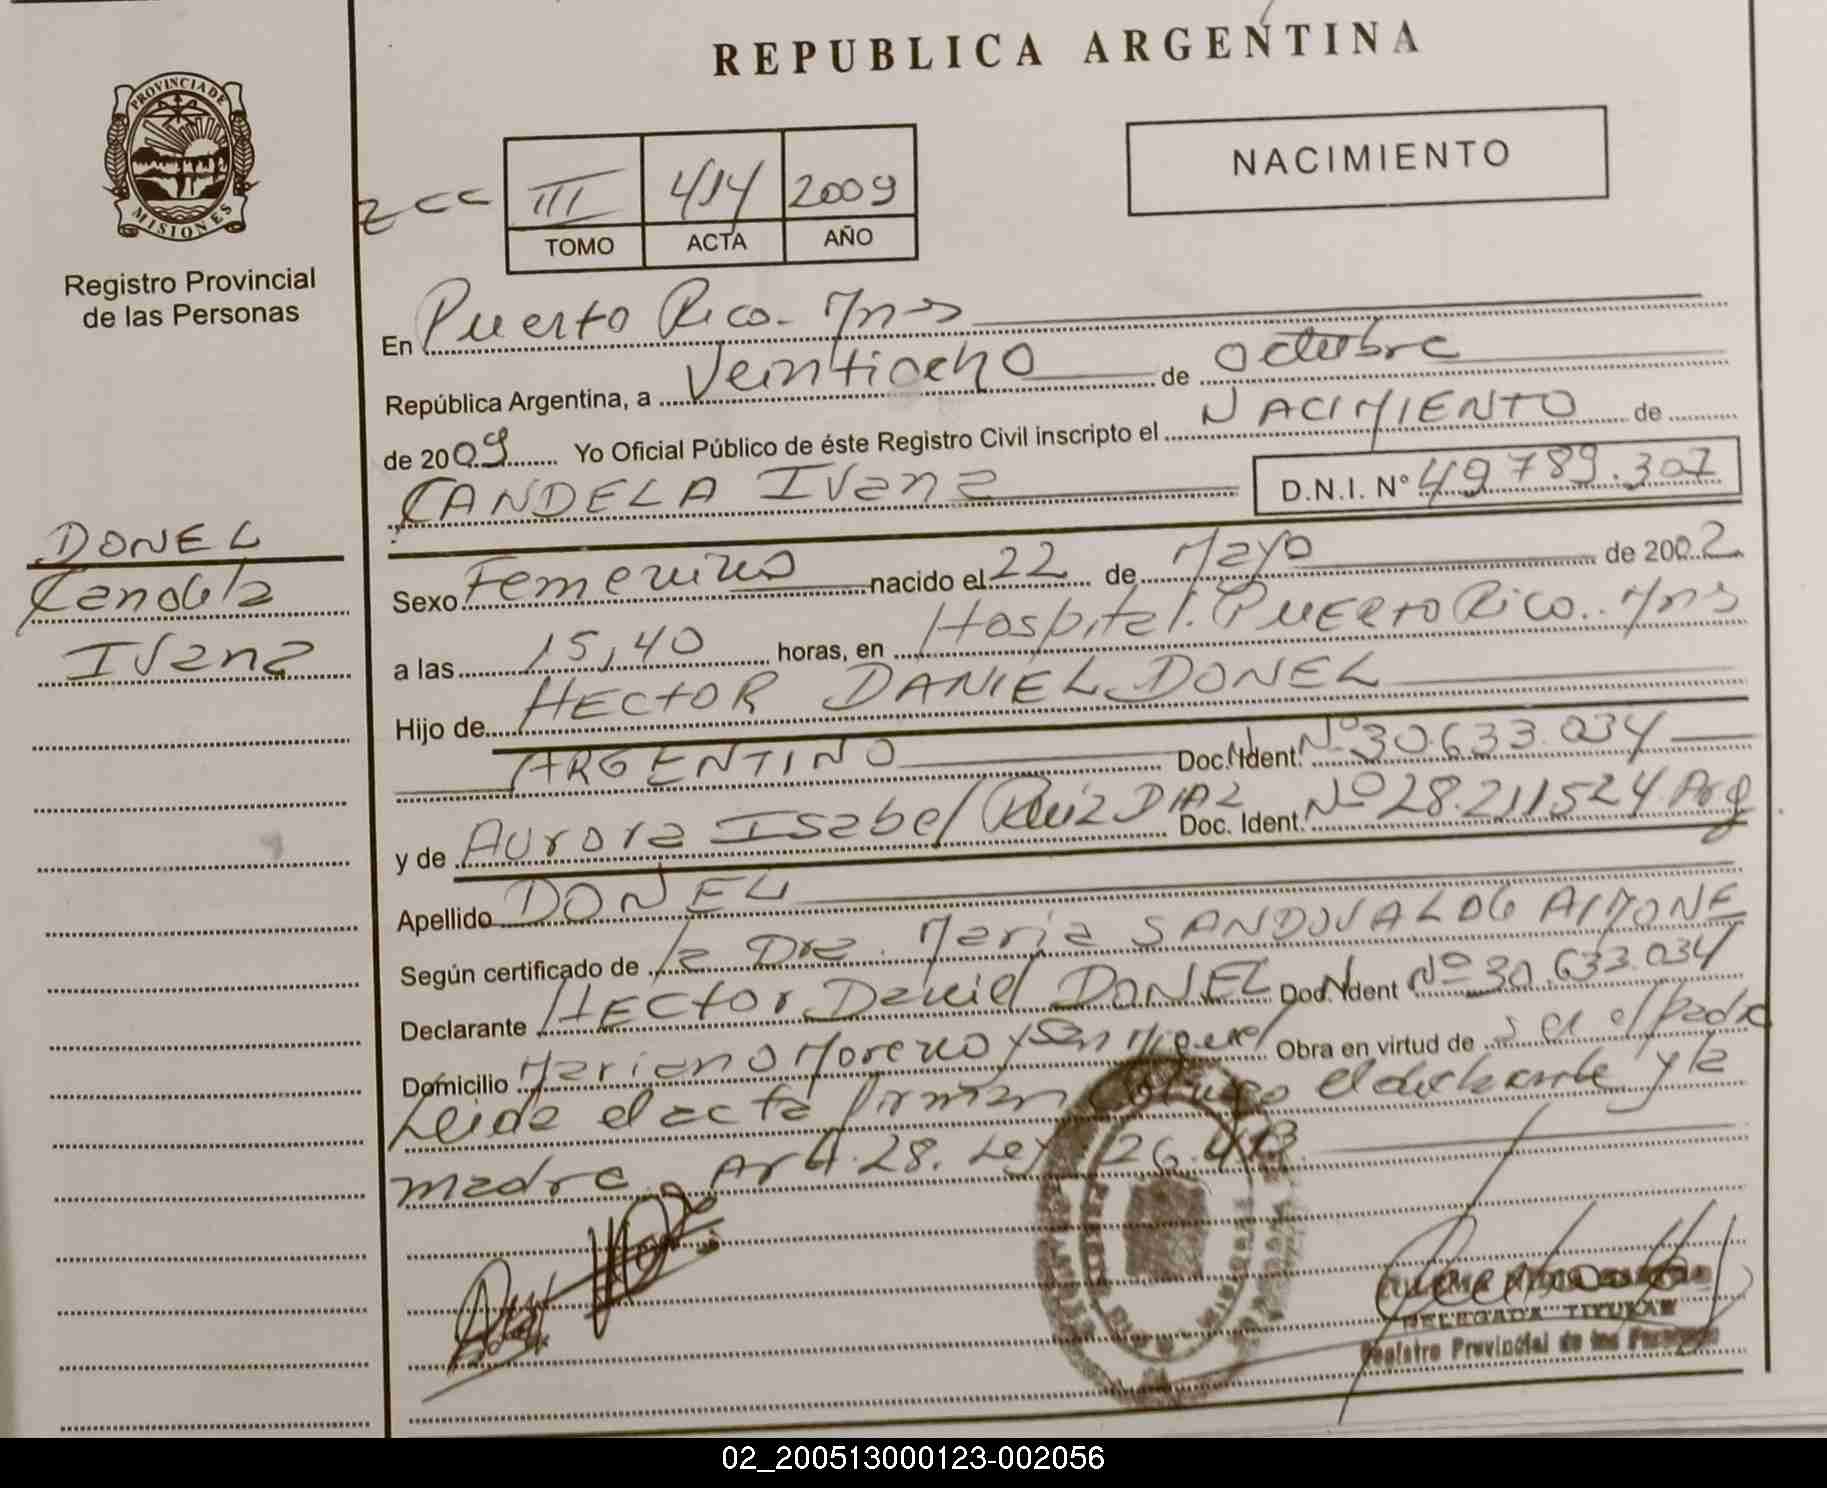 REPUBLICA ARGENTINA
PROVINCIA DE
MISIONES
Registro Provincial
de las Personas
NACIMIENTO
III 414 2009
TOMO ACTA AÑO
En Puerto Rico. Mns
República Argentina, a Veintiocho de octubre
de 2009 Yo Oficial Público de éste Registro Civil inscripto el NACIMIENTO de
CANDELA Ivana D.N.I. N° 49.789.307
DONEL
Candela
Ivana
Sexo Femenino nacido el 22 de Mayo de 2002
a las 15,40 horas, en Hospital. PUERTO RICO. Mns
Hijo de HECTOR DANIEL DONEL
ARGENTINO Doc. Ident. Nº 30.633.034
y de Aurora Isabel Ruiz DIAZ Doc. Ident. Nº 28.211524 Arg
Apellido DONEL
Según certificado de la Dra. Maria SANDOVAL DE AIMONE
Declarante HECtor Daniel DONEL Doc. Ident Nº 30.633.034
Domicilio Mariano Moreno y San Miguel Obra en virtud de ser el padre
Leida el acta firman el declarante y la
madre Art. 28. Ley 26.413
DELEGADA TITULAR
Registro Provincial de las Personas
02_200513000123-002056